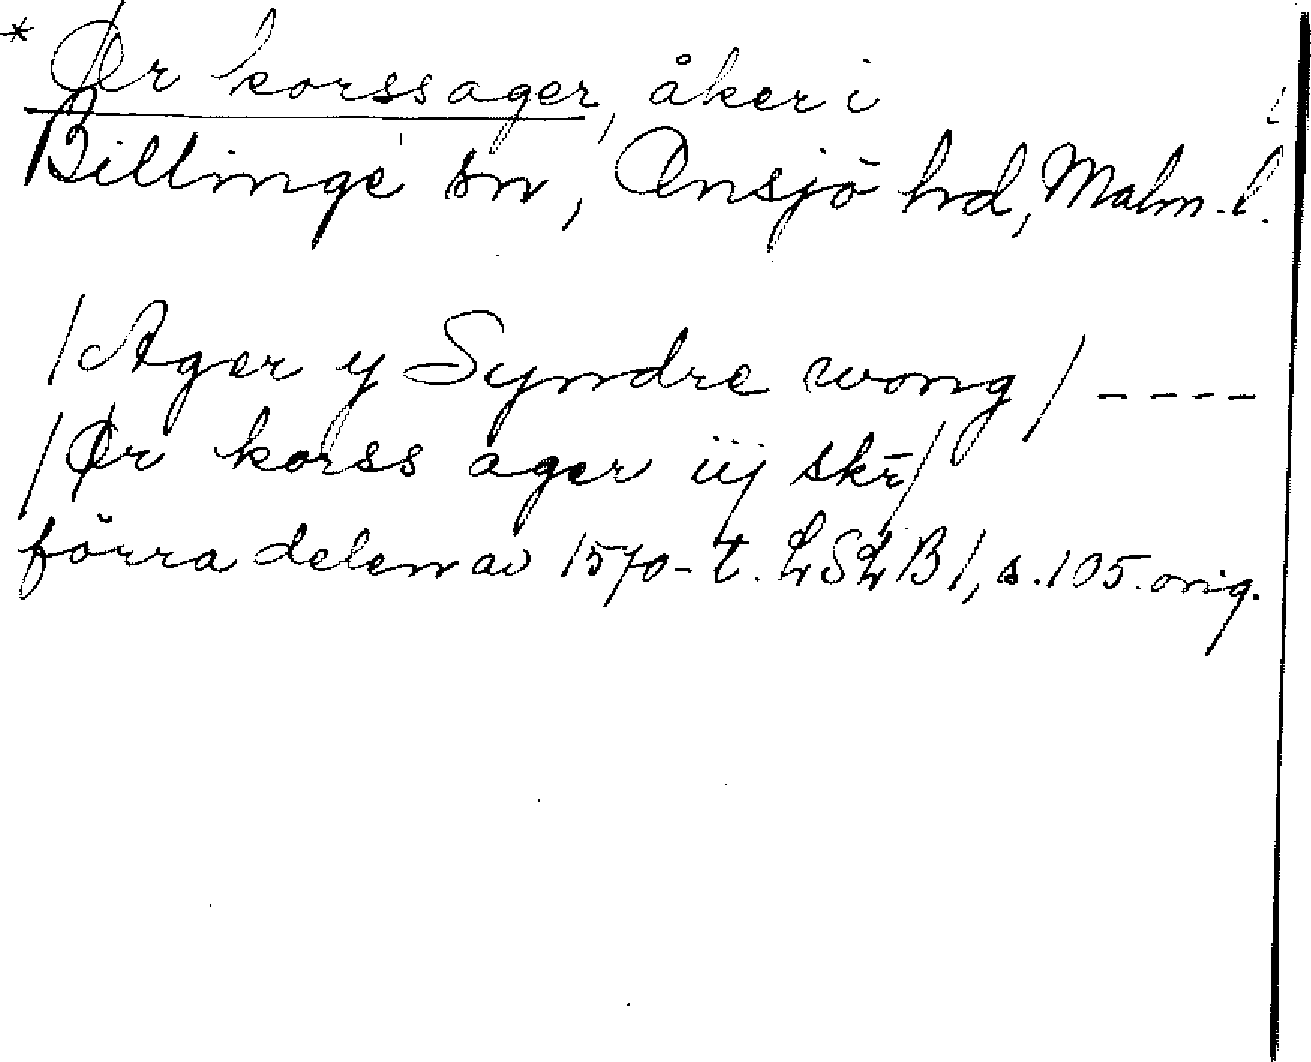 * Ør korssager, åker i
Billinge sn, Onsjö hd, Malm. l.
/Ager y Syndre wong/ ----
/Ør korss ager iij skr̄/
förra delen av 1570-t. LSLB 1, s. 105. orig.